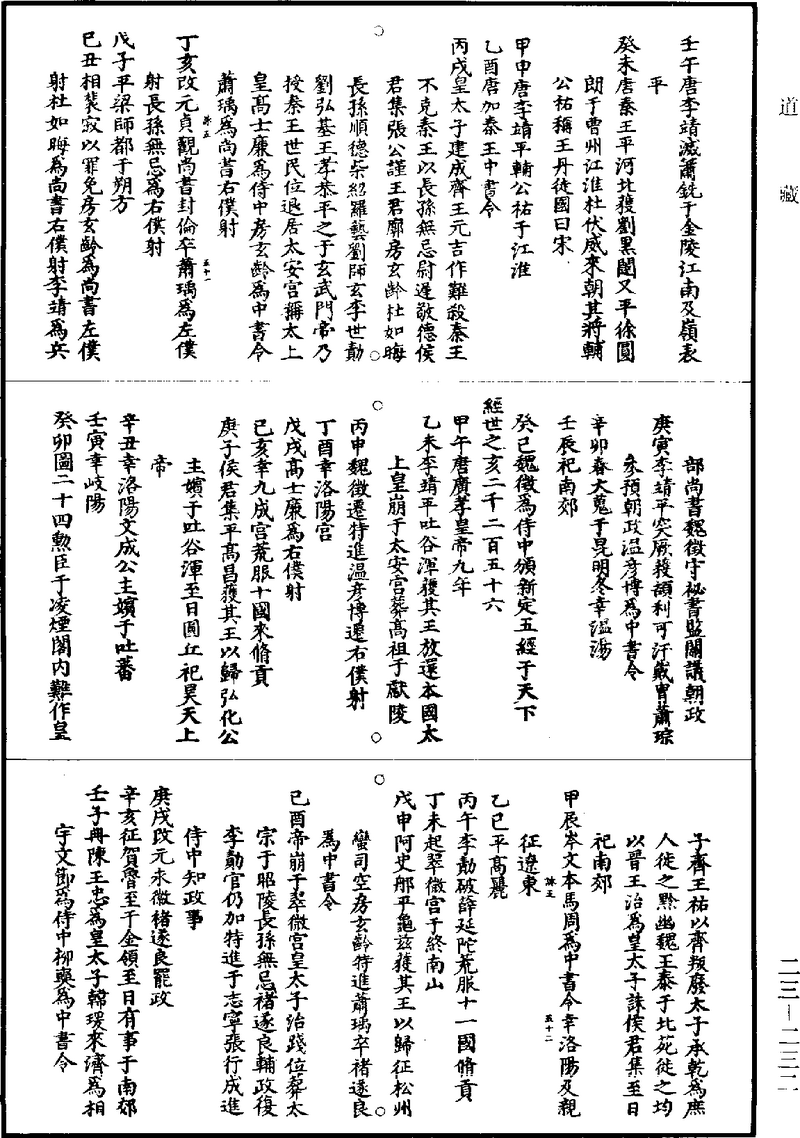 道藏
壬午唐李靖滅蕭銑于金陵江南及嶺表
平
癸未唐秦王平河北獲劉黑闥又平徐圓
朗于曹州江淮杜伏威來朝其將輔
公祏稱王丹徒國曰宋
甲申唐李靖平輔公祏于江淮
乙酉唐加秦王中書令
丙戌皇太子建成齊王元吉作難殺秦王
不克秦王以長孫無忌尉遲敬德侯
君集張公謹王君廓房玄齡杜如晦
長孫順德柴紹羅藝劉師玄李世勣
劉弘基王孝恭平之于玄武門帝乃
授秦王世民位退居太安宮稱太上
皇高士廉爲侍中房玄齡爲中書令
蕭瑀爲尚書右僕射
丁亥改元貞觀尚書封倫卒蕭瑀爲左僕
射長孫無忌爲右僕射
戊子平梁師都于朔方
己丑相裴寂以罪免房玄齡爲尚書左僕
射杜如晦爲尚書右僕射李靖爲兵
五十一
部尚書魏徵守祕書監關議朝政
庚寅李靖平突厥獲頡利可汗戴胄蕭琮
參預朝政温彥博爲中書令
辛卯春大蒐于昆明冬幸溫湯
壬辰祀南郊
癸巳魏徵爲侍中頒新定五經于天下
經世之亥二千二百五十六
甲午唐廣孝皇帝九年
乙未李靖平吐谷渾獲其王放還本國太
上皇崩于太安宮葬高祖于獻陵
丙申魏徵遷特進温彥博遷右僕射
丁酉幸洛陽宮
戊戌高士廉爲右僕射
己亥幸九成宮荒服十國來脩貢
庚子侯君集平高昌獲其王以歸弘化公
主嬪于吐谷渾至日圓丘祀昊天上
帝
辛丑幸洛陽文成公主嬪于吐蕃
壬寅幸岐陽
癸卯圖二十四勳臣于凌煙閣内難作皇
子齊王祐以齊叛廢太子承乾爲庶
人徙之黔幽魏王泰于北苑徙之均
以晉王治爲皇太子誅侯君集至日
祀南郊
甲辰岑文本馬周爲中書令幸洛陽及親
征遼東
五十二
乙巳平高麗
丙午李勣破薛延陀荒服十一國脩貢
丁未起翠微宮于終南山
戊申阿史那平龜茲獲其王以歸征松州
蠻司空房玄齡特進蕭瑀卒褚遂良
爲中書令
己酉帝崩于翠微宮皇太子治踐位葬太
宗于昭陵長孫無忌褚遂良輔政復
李勣官仍加特進于志寧張行成進
侍中知政事
庚戌改元永徽褚遂良罷政
辛亥征賀魯至于金領至日有事于南郊
壬子冊陳王忠爲皇太子韓瑗來濟爲相
宇文節爲侍中柳奭爲中書令
二三—二三二